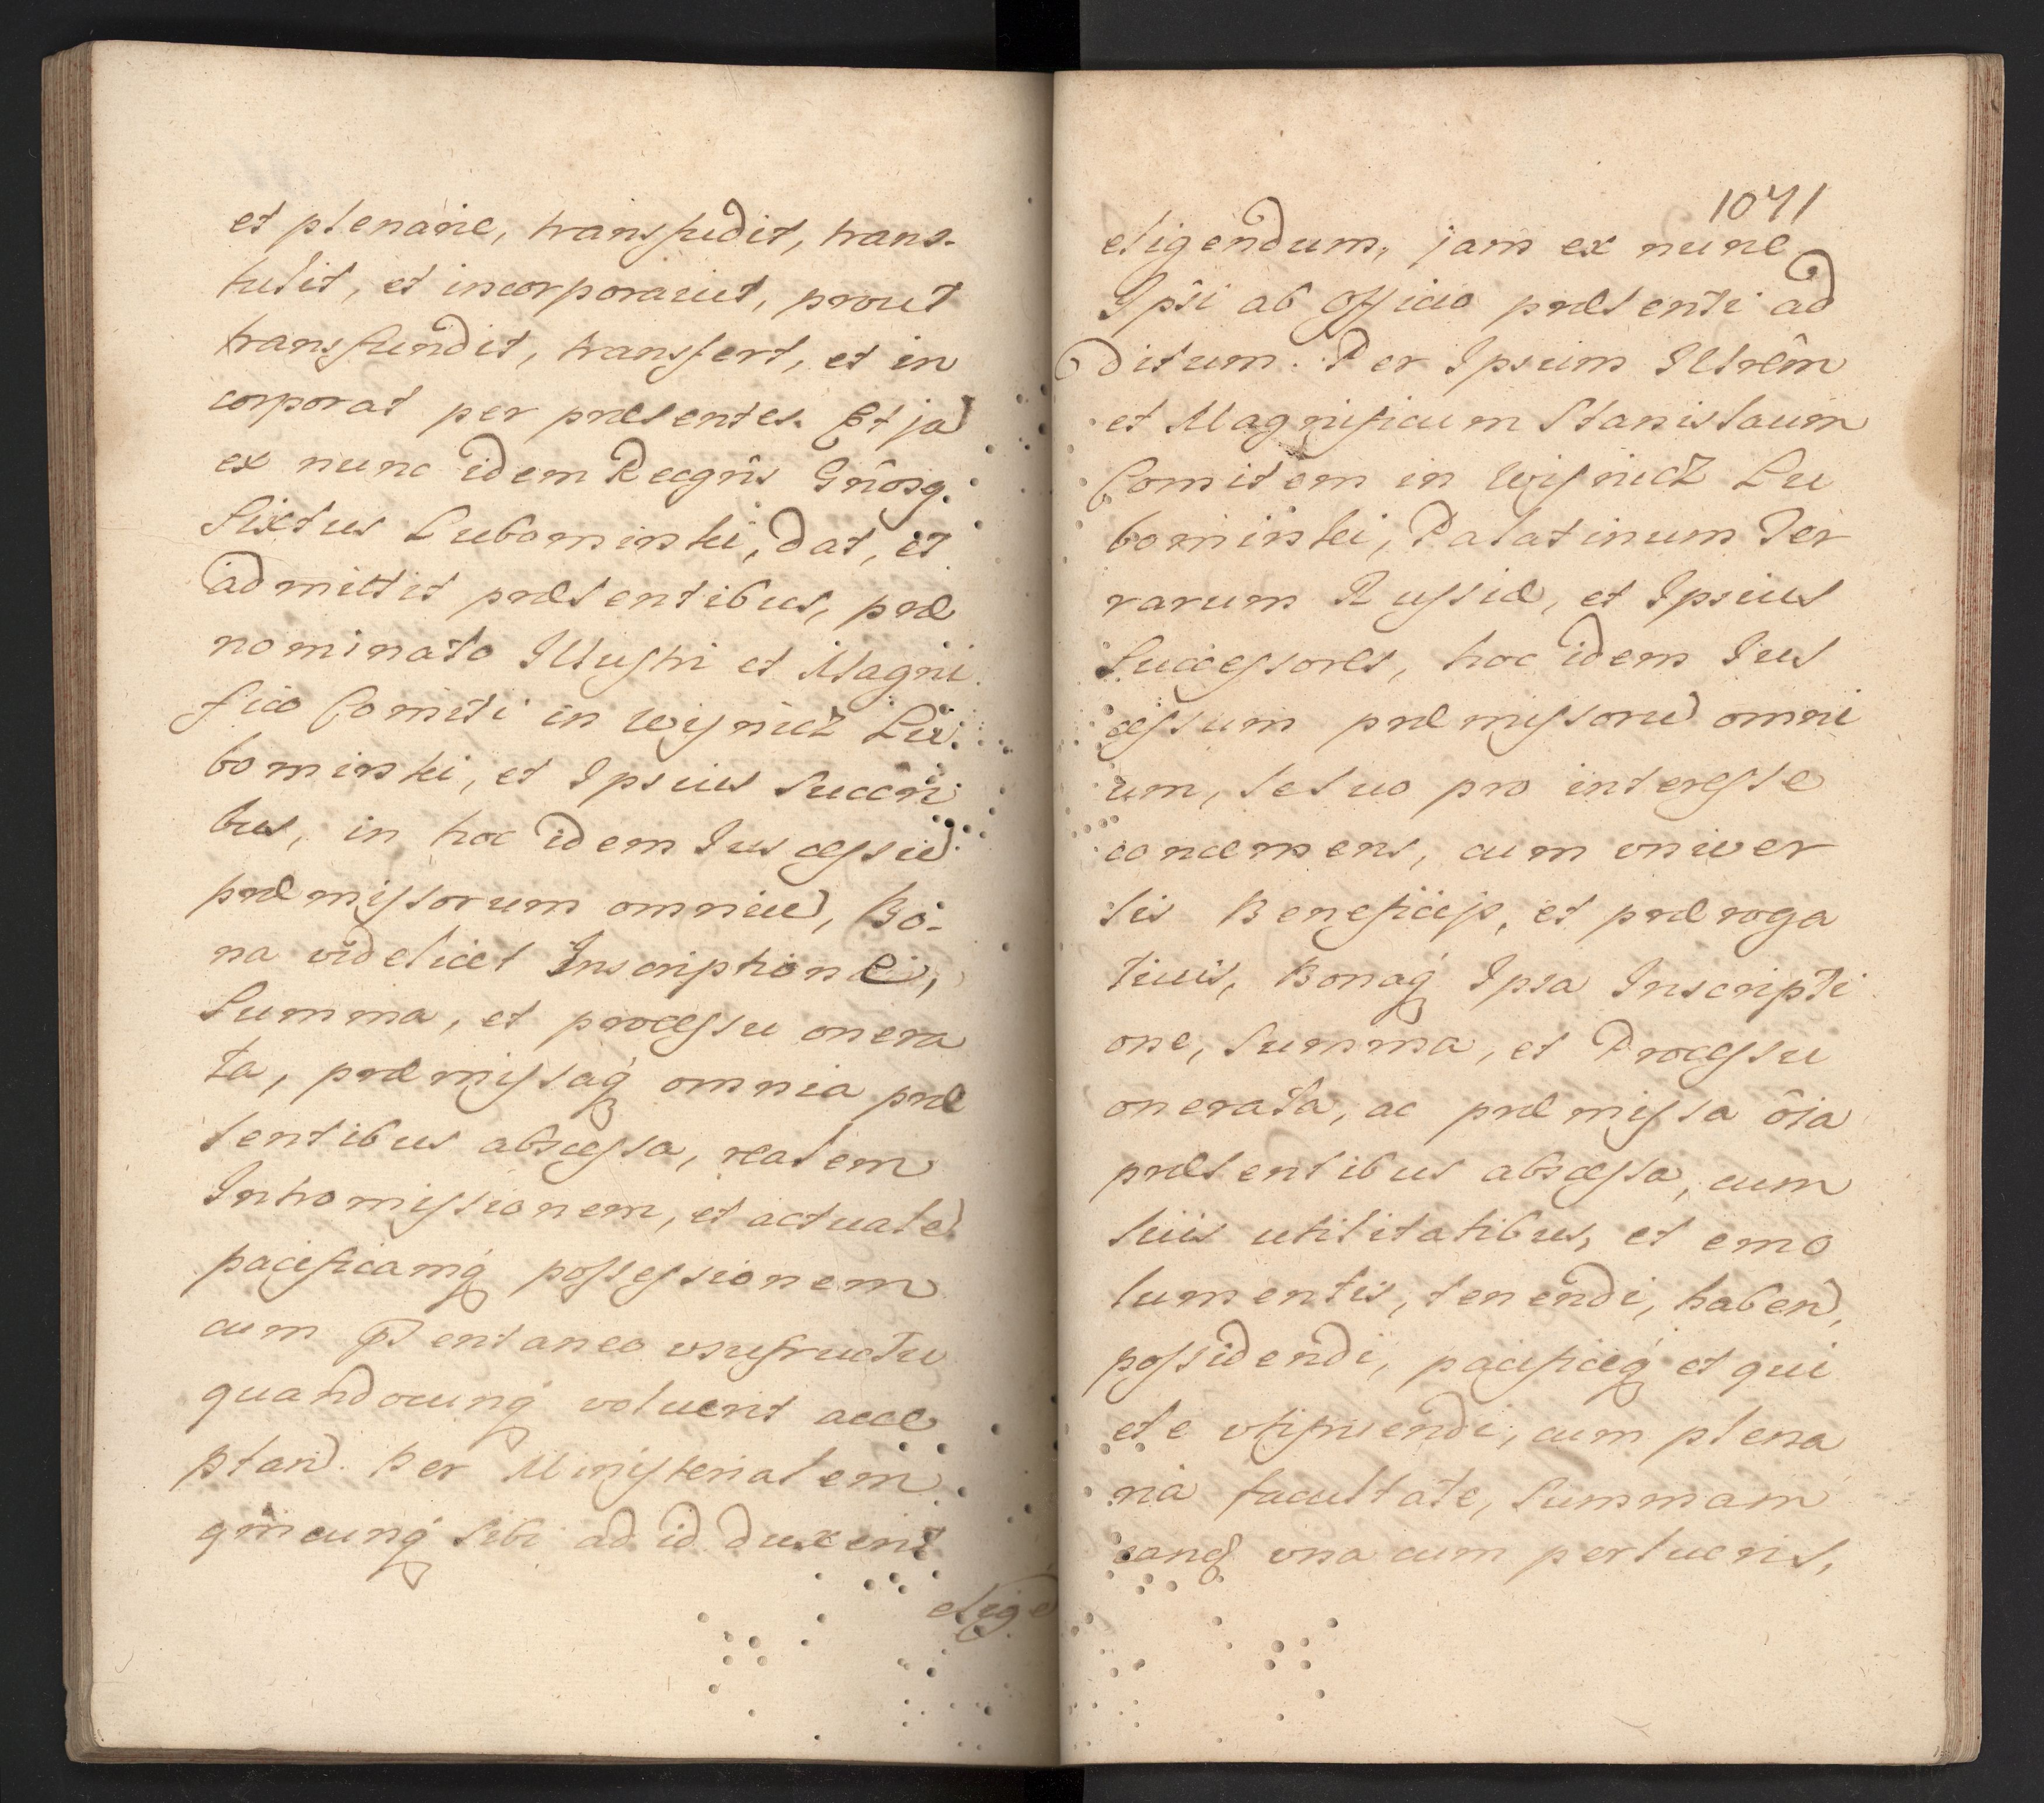 et plenarie, transfudit, trans-
tulit, et incorporavit, prout
transfundit, transfert, et in
corporat per præsentes. Et ja
ex nunc idem Recgñs Gñosq.
Sixtus Lubominski, dat, et
admittit præsentibus, præ
nominato Illustri et Magni
fico Comiti in Wisnicz Lu-
bominski, et Ipsius Succri
bus, in hoc idem Ius cessu
præmissorum omniu, Bo-
na videlicet Inscriptione,
Summa, et processu onera
ta, præmissaq omnia præ
sentibus abscessa, realem
Intromissionem, et actuale
pacificamq possessionem
cum
usufructu
quandocunq voluerit acce
ptand. Per Ministerialem
qmcunq sibi ad id duxerit
elige
1041
eligendum, jam ex nunc
Ipsi ab officio præsenti ad
ditum. Per Ipsum Illrêm
et Magnificum Stanislaum
Comitem in Wisnicz Lu
bominski, Palatinum Ter
rarum Russiæ, et Ipsius
Successores, hoc idem Ius
cessum præmissoru omni
um, se suo pro interesse
concernens, cum univer
sis Beneficijs, et præroga
tiuis, Bonaq Ipsa Inscripti
one, Summa, et Processu
onerata, ac præmissa ôia
præsentibus abscessa, cum
suis utilitatibus, et emo
lumentis, tenendi, haben,
possidendi, pacificeq et qui
ete utifruendi, cum plena
ria facultate, Summam
eanq una cum perlucris,